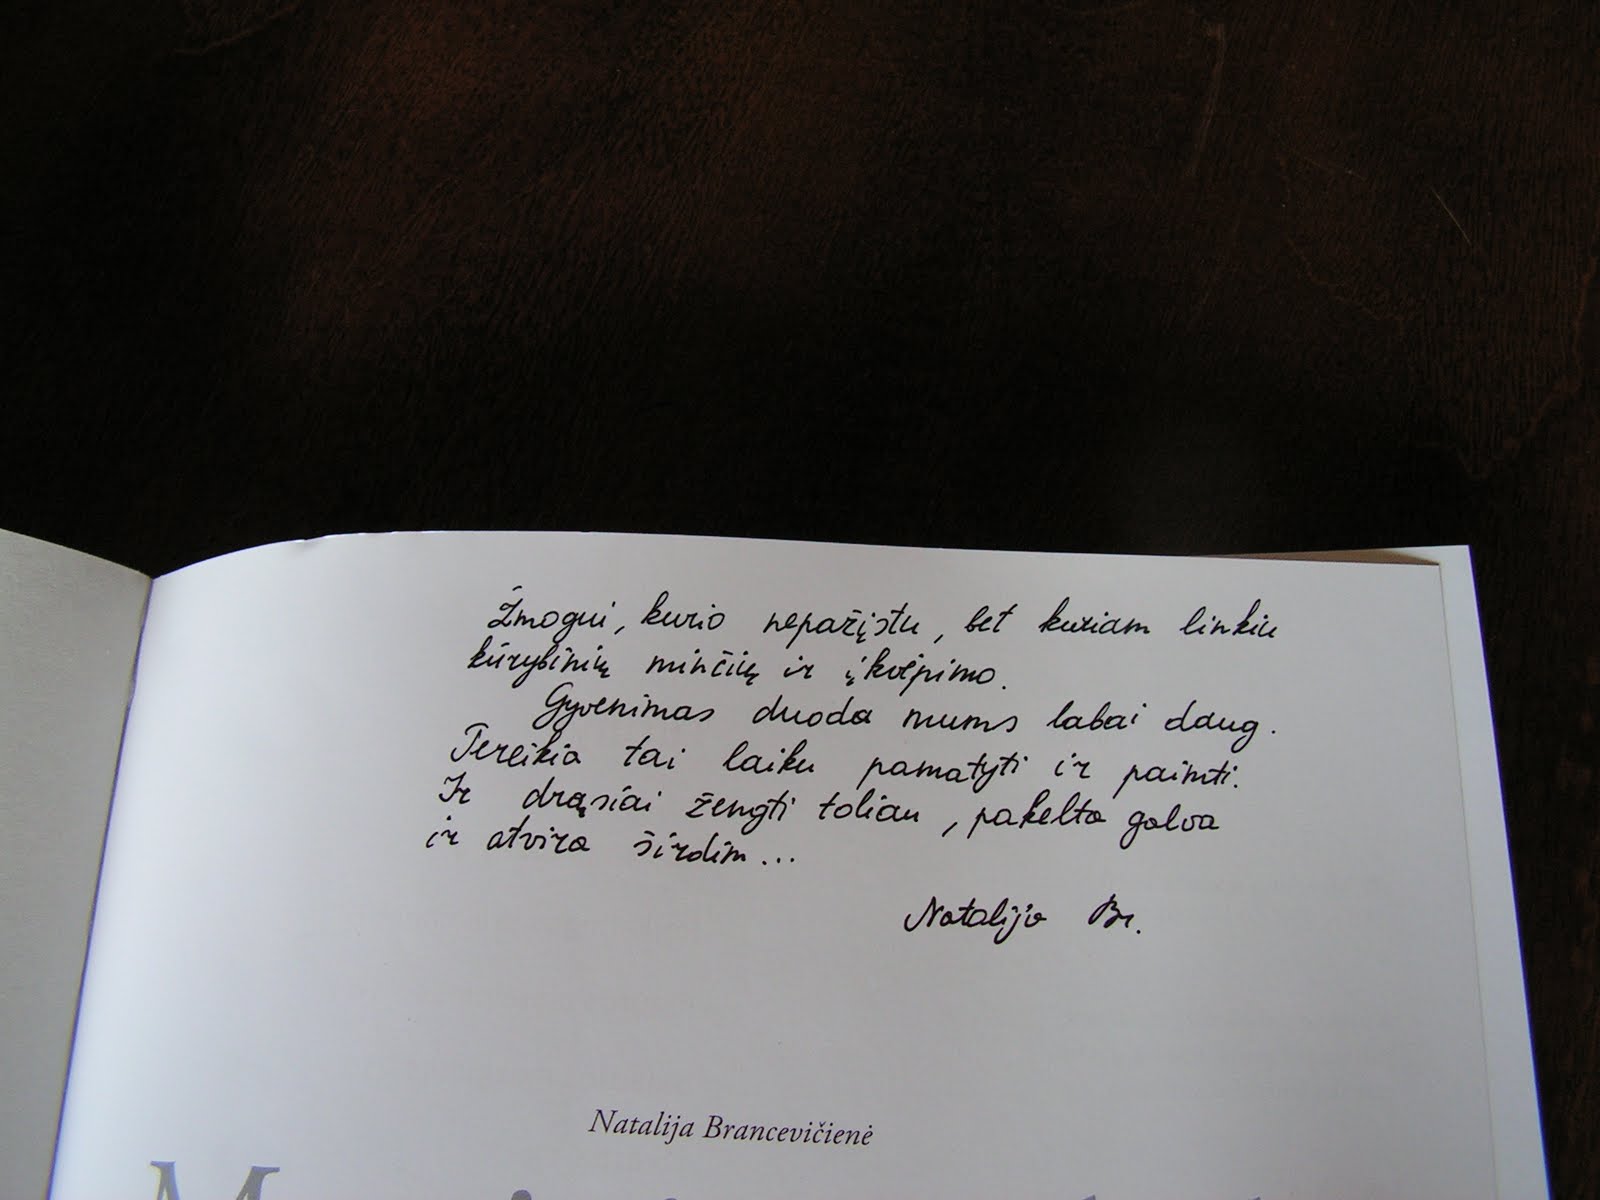 Žmogui, kurio nepažįstu, bet kuriam linkiu
kūrybinių minčių ir įkvėpimo.
Gyvenimas duoda mums labai daug.
Tereikia tai laiku pamatyti ir paimti.
Ir drąsiai žengti toliau, pakelta galva
ir atvira širdim...
Natalija Br.
Natalija Brancevičienė